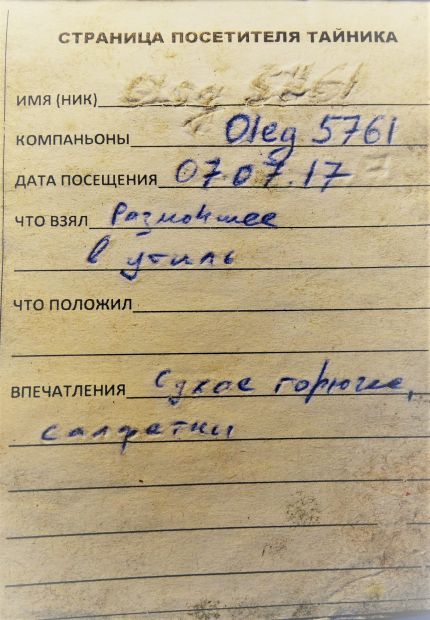 СТРАНИЦА ПОСЕТИТЕЛЯ ТАЙНИКА
ИМЯ (НИК) Oleg 5761
КОМПАНЬОНЫ Oleg 5761
ДАТА ПОСЕЩЕНИЯ 07.07.17
ЧТО ВЗЯЛ Размокшее
в утиль
ЧТО ПОЛОЖИЛ
ВПЕЧАТЛЕНИЯ Сухое горючее,
салфетки